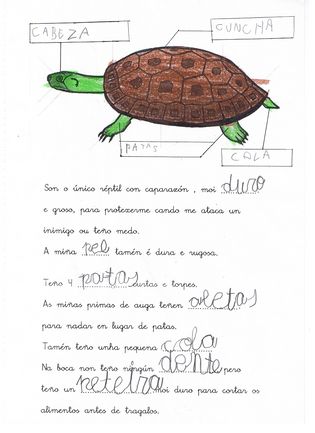 CABEZA
CUNCHA
PATAS
COLA
Son o único réptil con caparazón , moi duro
e groso, para protexerme cando me ataca un
inimigo ou teño medo.
A miña pel tamén é dura e rugosa.
Teño 4 patas curtas e torpes.
As miñas primas de auga teñen aletas
para nadar en lugar de patas.
Tamén teño unha pequena cola
Na boca non teño ningún dente pero
teño un peteira moi duro para cortar os
alimentos antes de tragalos.